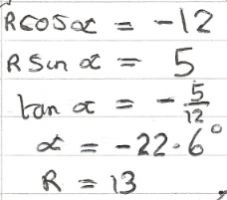 Rcosα = -12
Rsinα = 5
tanα = -5/12
α = -22.6°
R = 13